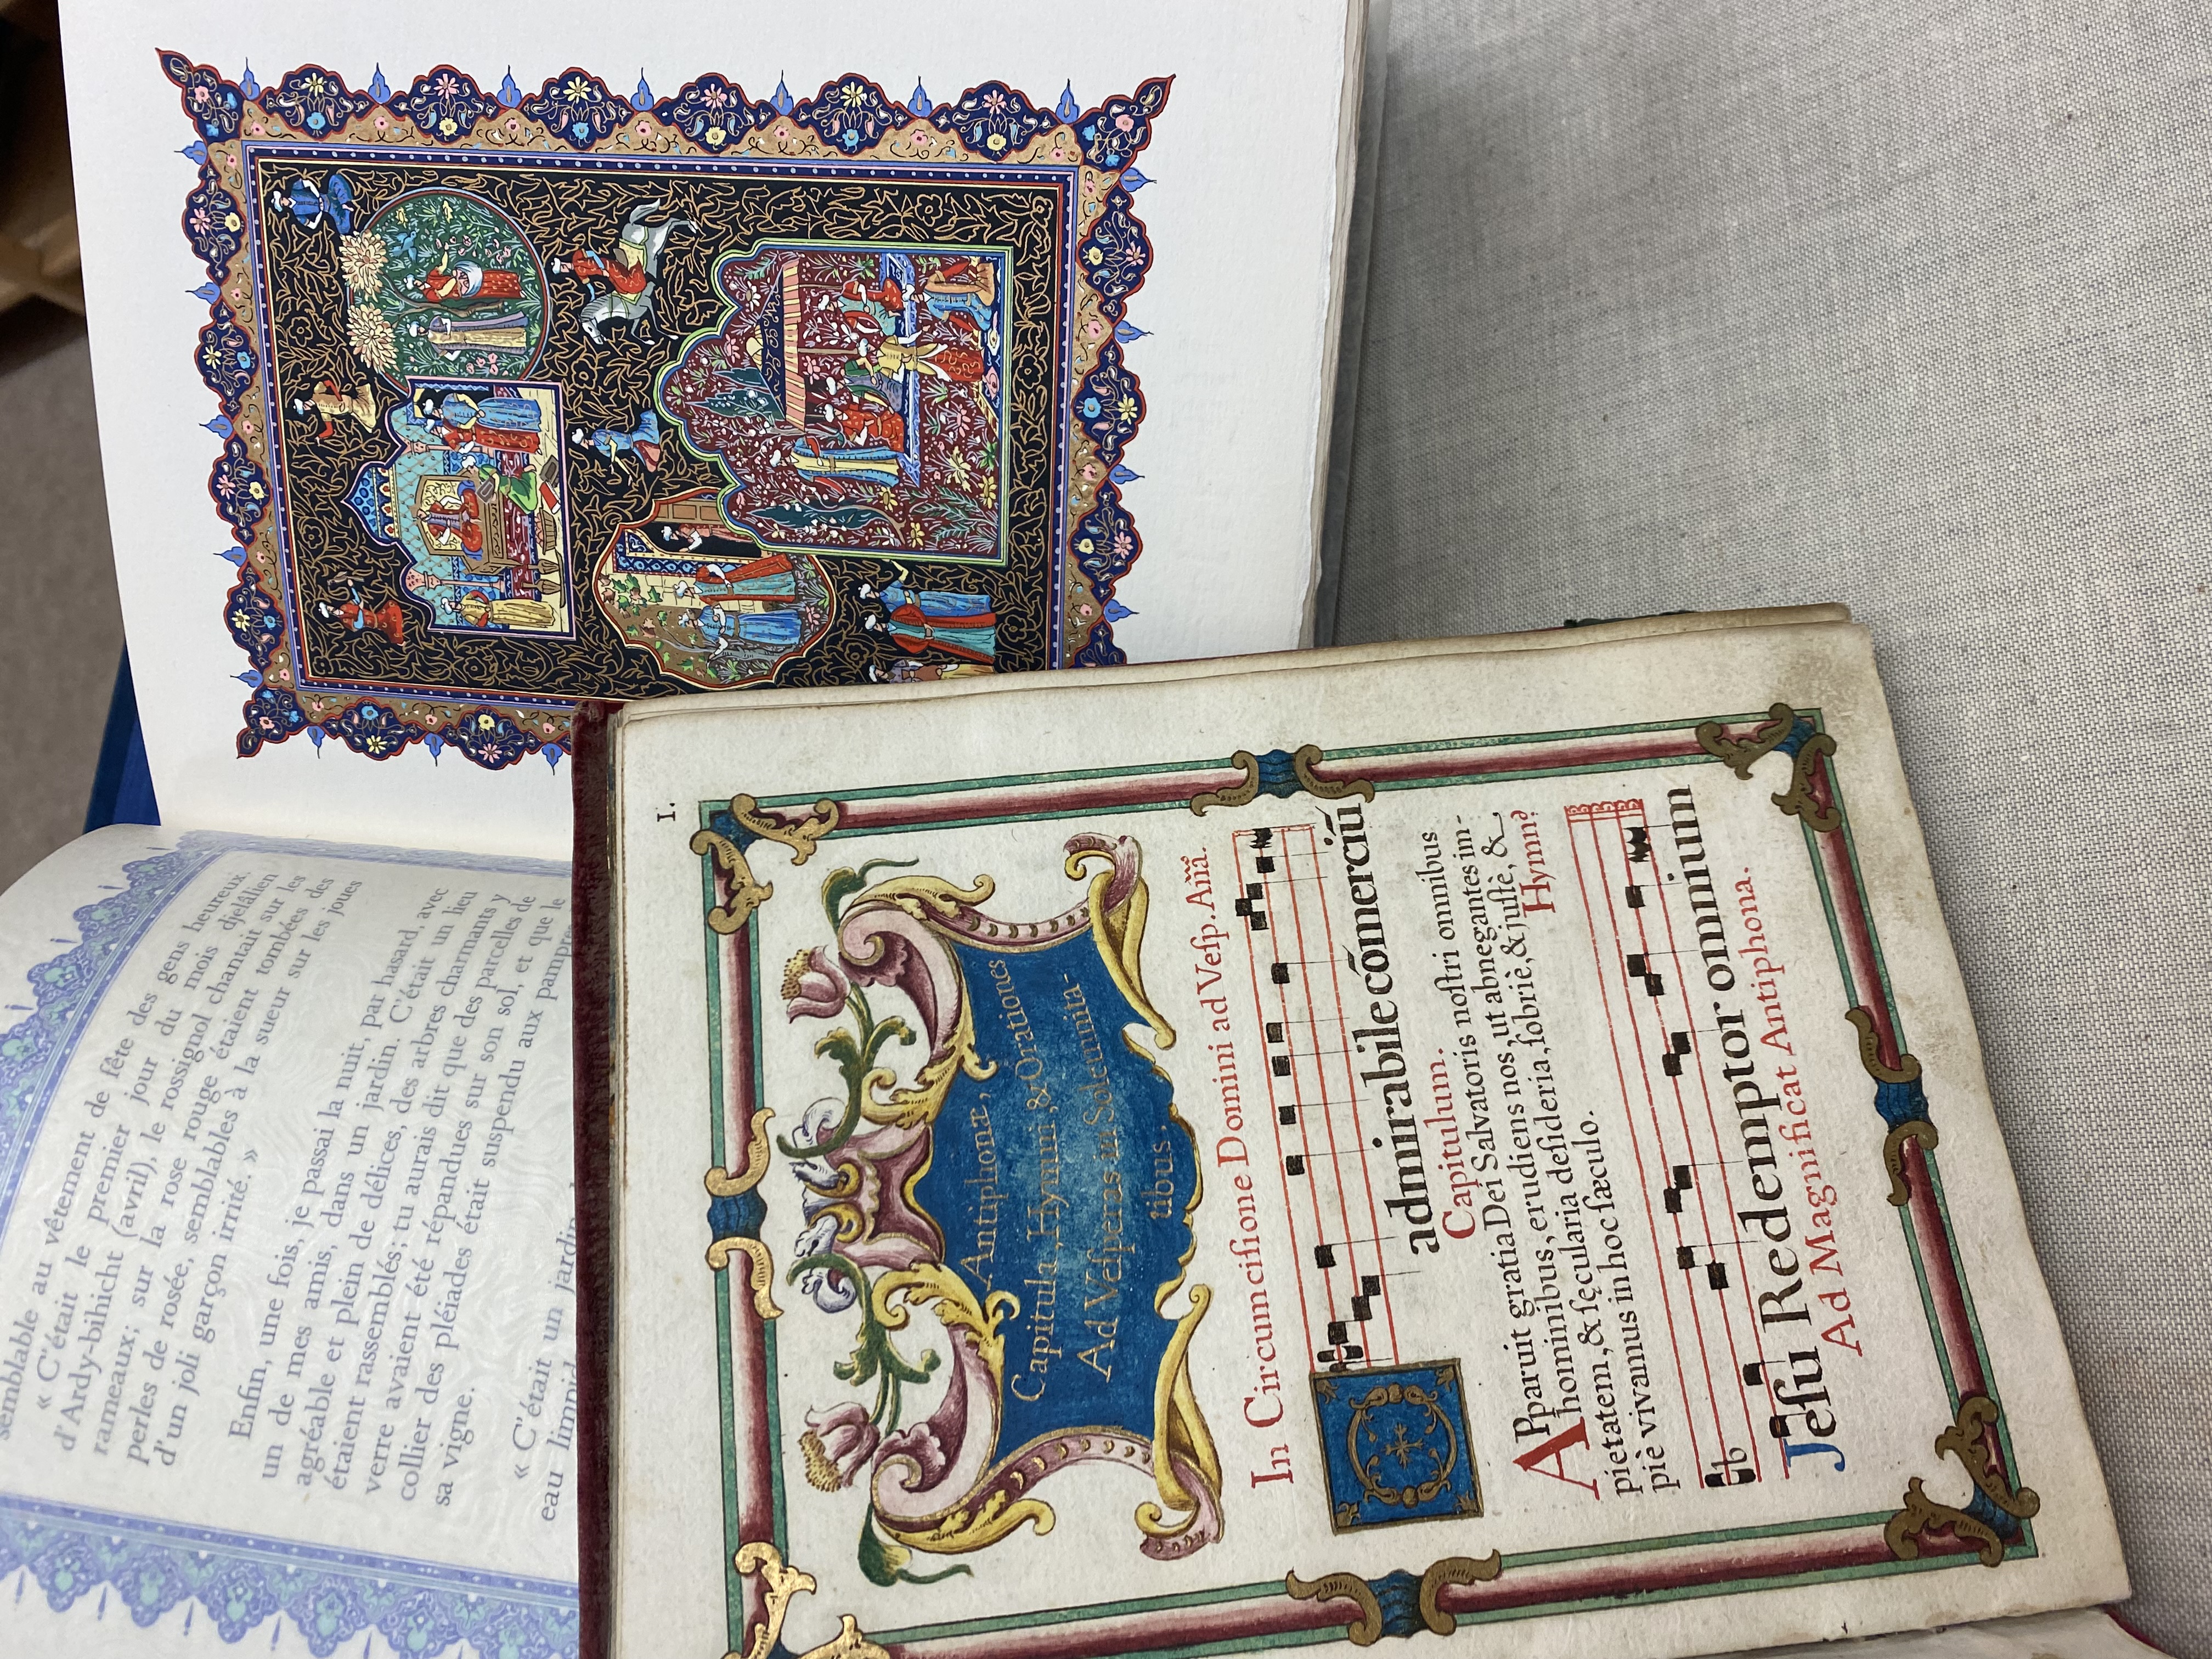 semblable au vêtement de fête des gens heureux.
« C'était le premier jour du mois djelâlien
d'Ardy-bihicht (avril), le rossignol chantait sur les
rameaux; sur la rose rouge étaient tombées des
perles de rosée, semblables à la sueur sur les joues
d'un joli garçon irrité. »
Enfin, une fois, je passai la nuit, par hasard, avec
un de mes amis, dans un jardin. C'était un lieu
agréable et plein de délices, des arbres charmants y
étaient rassemblés; tu aurais dit que des parcelles de
verre avaient été répandues sur son sol, et que le
collier des pléiades était suspendu aux pampres
sa vigne.
« C'était un jardin
eau limpid
I.
Antiphonæ,
Capitula, Hymni, & Orationes
Ad Veſperas in Solemnita-
tibus.
In Circumciſione Domini ad Veſp. Añã.
O admirabile cómerciũ
Capitulum.
APparuit gratia Dei Salvatoris noſtri omnibus
hominibus, erudiens nos, ut abnegantes im-
pietatem, & ſęcularia deſideria, ſobriè, & juſtè, &
piè vivamus in hoc ſæculo. Hymn9
Jeſu Redemptor omnium
Ad Magnificat Antiphona.